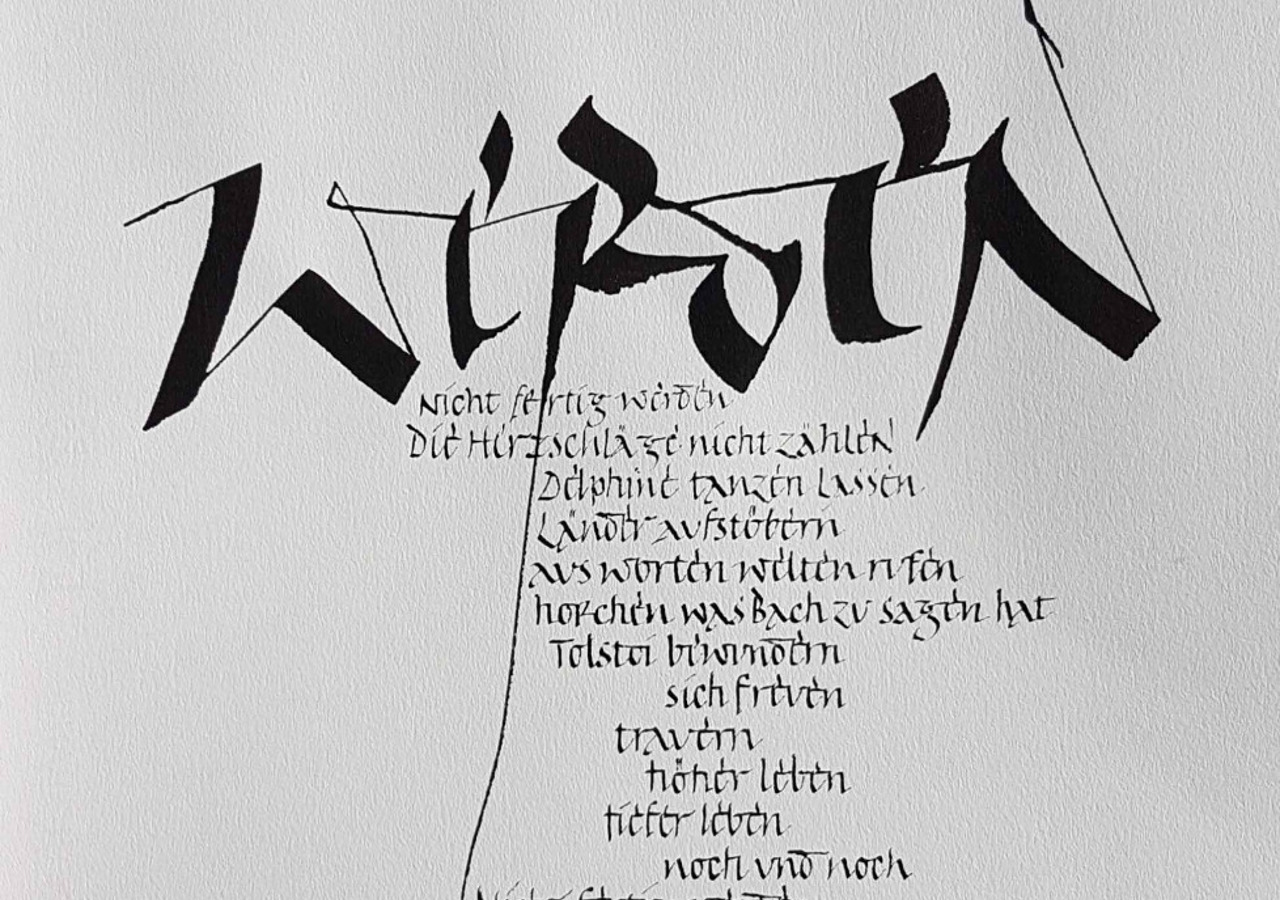 Werden
Nicht fertig werden
Die Herzschläge nicht zählen
Delphine tanzen lassen
Länder aufstöbern
aus worten welten rufen
horchen was Bach zu sagen hat
Tolstoi bewundern
sich freuen
trauern
höher leben
tiefer leben
noch und noch
Nicht fertig werden